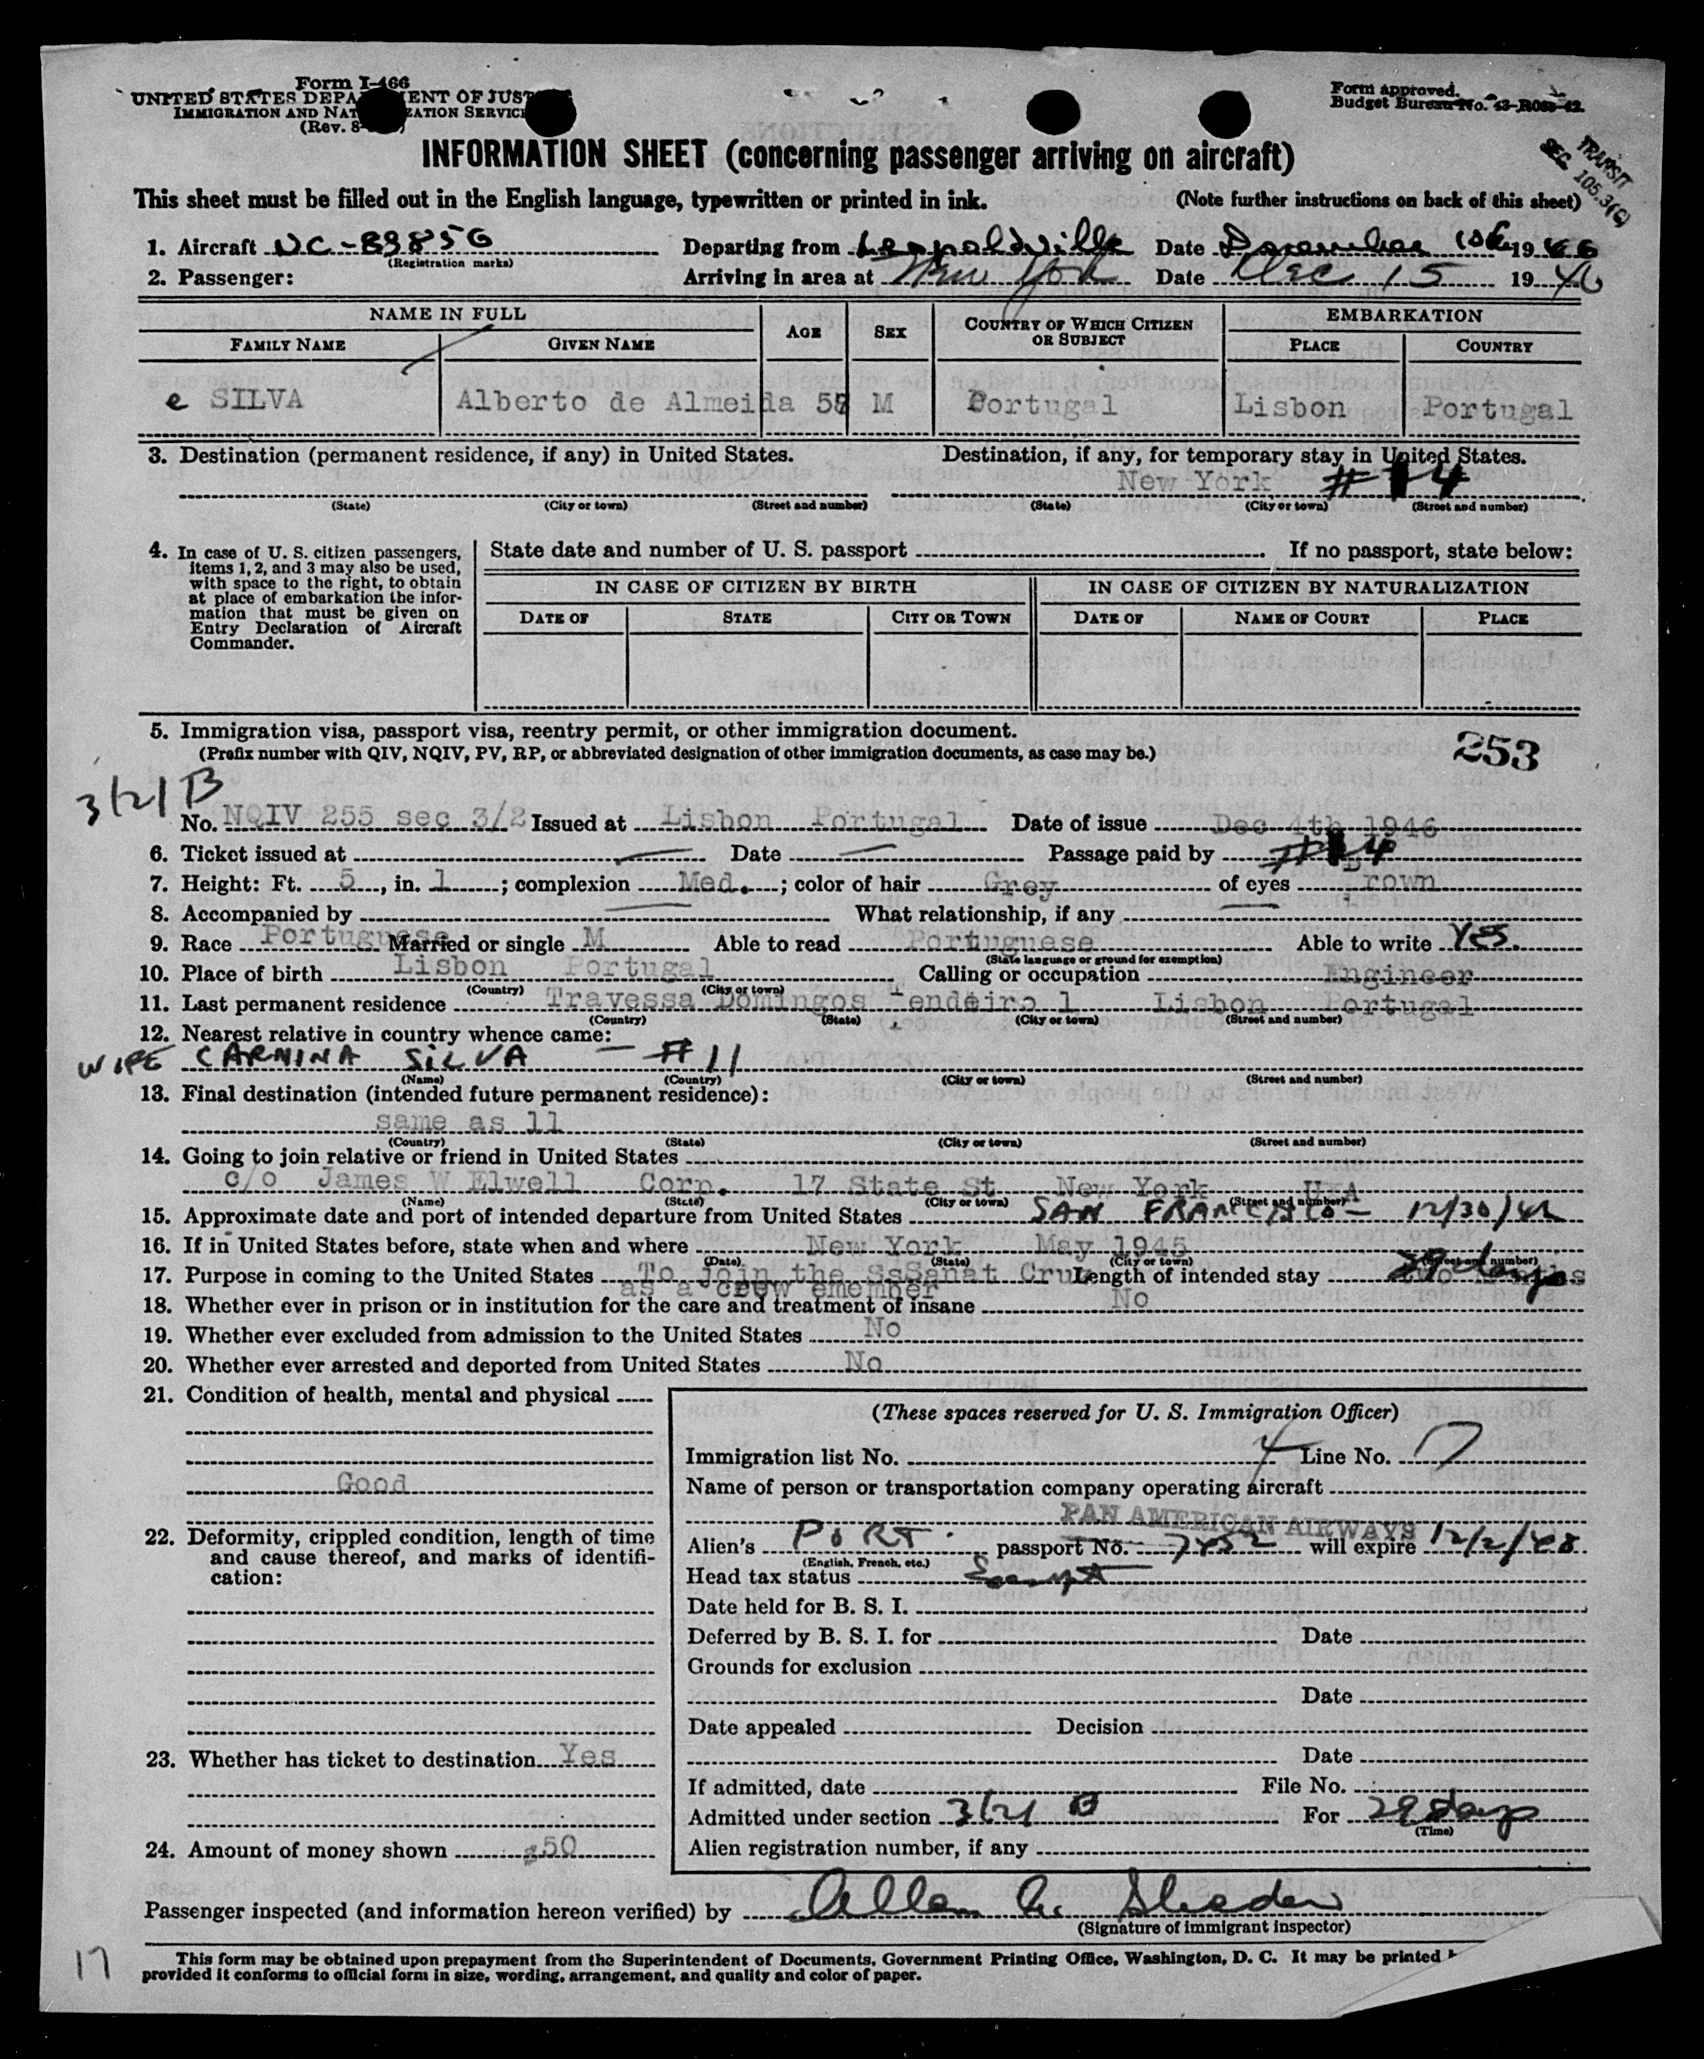 Form I-466
UNITED STATES DEPA ENT OF JUST
IMMIGRATION AND NAT ZATION SERVIC
(Rev. 8- )
Form approved.
Budget Bureau No. 43-R083-42.
TRANSIT
SEC. 105.3(G)
INFORMATION SHEET (concerning passenger arriving on aircraft)
This sheet must be filled out in the English language, typewritten or printed in ink. (Note further instructions on back of this sheet)
1. Aircraft NC-89856 Departing from Leopoldville Date December 1946
(Registration marks)
2. Passenger: Arriving in area at New York Date Dec 15 1946
NAME IN FULL AGE SEX COUNTRY OF WHICH CITIZEN OR SUBJECT EMBARKATION
FAMILY NAME GIVEN NAME PLACE COUNTRY
e SILVA Alberto de Almeida 58 M Portugal Lisbon Portugal
3. Destination (permanent residence, if any) in United States. Destination, if any, for temporary stay in United States.
New York #14
(State) (City or town) (Street and number) (State) (City or town) (Street and number)
4. In case of U. S. citizen passengers, items 1, 2, and 3 may also be used, with space to the right, to obtain at place of embarkation the information that must be given on Entry Declaration of Aircraft Commander.
State date and number of U. S. passport . If no passport, state below:
IN CASE OF CITIZEN BY BIRTH IN CASE OF CITIZEN BY NATURALIZATION
DATE OF STATE CITY OR TOWN DATE OF NAME OF COURT PLACE
5. Immigration visa, passport visa, reentry permit, or other immigration document.
(Prefix number with QIV, NQIV, PV, RP, or abbreviated designation of other immigration documents, as case may be.)
253
3/2/B
No. NQIV 255 sec 3/2 Issued at Lisbon Portugal Date of issue Dec 4th 1946
6. Ticket issued at — Date — Passage paid by #14
7. Height: Ft. 5, in. 1; complexion Med.; color of hair Grey of eyes Brown
8. Accompanied by — What relationship, if any —
9. Race Portuguese Married or single M Able to read Portuguese Able to write YES.
(State language or ground for exemption)
10. Place of birth Lisbon Portugal Calling or occupation Engineer
(Country) (City or town)
11. Last permanent residence Travessa Domingos Tendeiro 1 Lisbon Portugal
(Country) (State) (City or town) (Street and number)
12. Nearest relative in country whence came:
WIFE CARNINA SILVA — #11
(Name) (Country) (City or town) (Street and number)
13. Final destination (intended future permanent residence):
same as 11
(Country) (State) (City or town) (Street and number)
14. Going to join relative or friend in United States
c/o James W Elwell Corp. 17 State St New York UxA
(Name) (State) (City or town) (Street and number)
15. Approximate date and port of intended departure from United States SAN FRANCISCO — 12/30/46
16. If in United States before, state when and where New York May 1945
(Date) (State) (City or town) (Street and number)
17. Purpose in coming to the United States To join the SsSanat Cruz Length of intended stay 29 days
as a crew emember
18. Whether ever in prison or in institution for the care and treatment of insane No
19. Whether ever excluded from admission to the United States No
20. Whether ever arrested and deported from United States No
21. Condition of health, mental and physical
Good
22. Deformity, crippled condition, length of time and cause thereof, and marks of identification:
23. Whether has ticket to destination Yes
24. Amount of money shown $50
(These spaces reserved for U. S. Immigration Officer)
Immigration list No. 4 Line No. 17
Name of person or transportation company operating aircraft
PAN AMERICAN AIRWAYS
Alien's PORT. passport No. 7452 will expire 12/2/48
(English, French, etc.)
Head tax status Exempt
Date held for B. S. I.
Deferred by B. S. I. for Date
Grounds for exclusion
Date
Date appealed Decision
Date
If admitted, date File No.
Admitted under section 3/2/ B For 29 days
(Time)
Alien registration number, if any
Passenger inspected (and information hereon verified) by Allen
(Signature of immigrant inspector)
17
This form may be obtained upon prepayment from the Superintendent of Documents, Government Printing Office, Washington, D. C. It may be printed
provided it conforms to official form in size, wording, arrangement, and quality and color of paper.